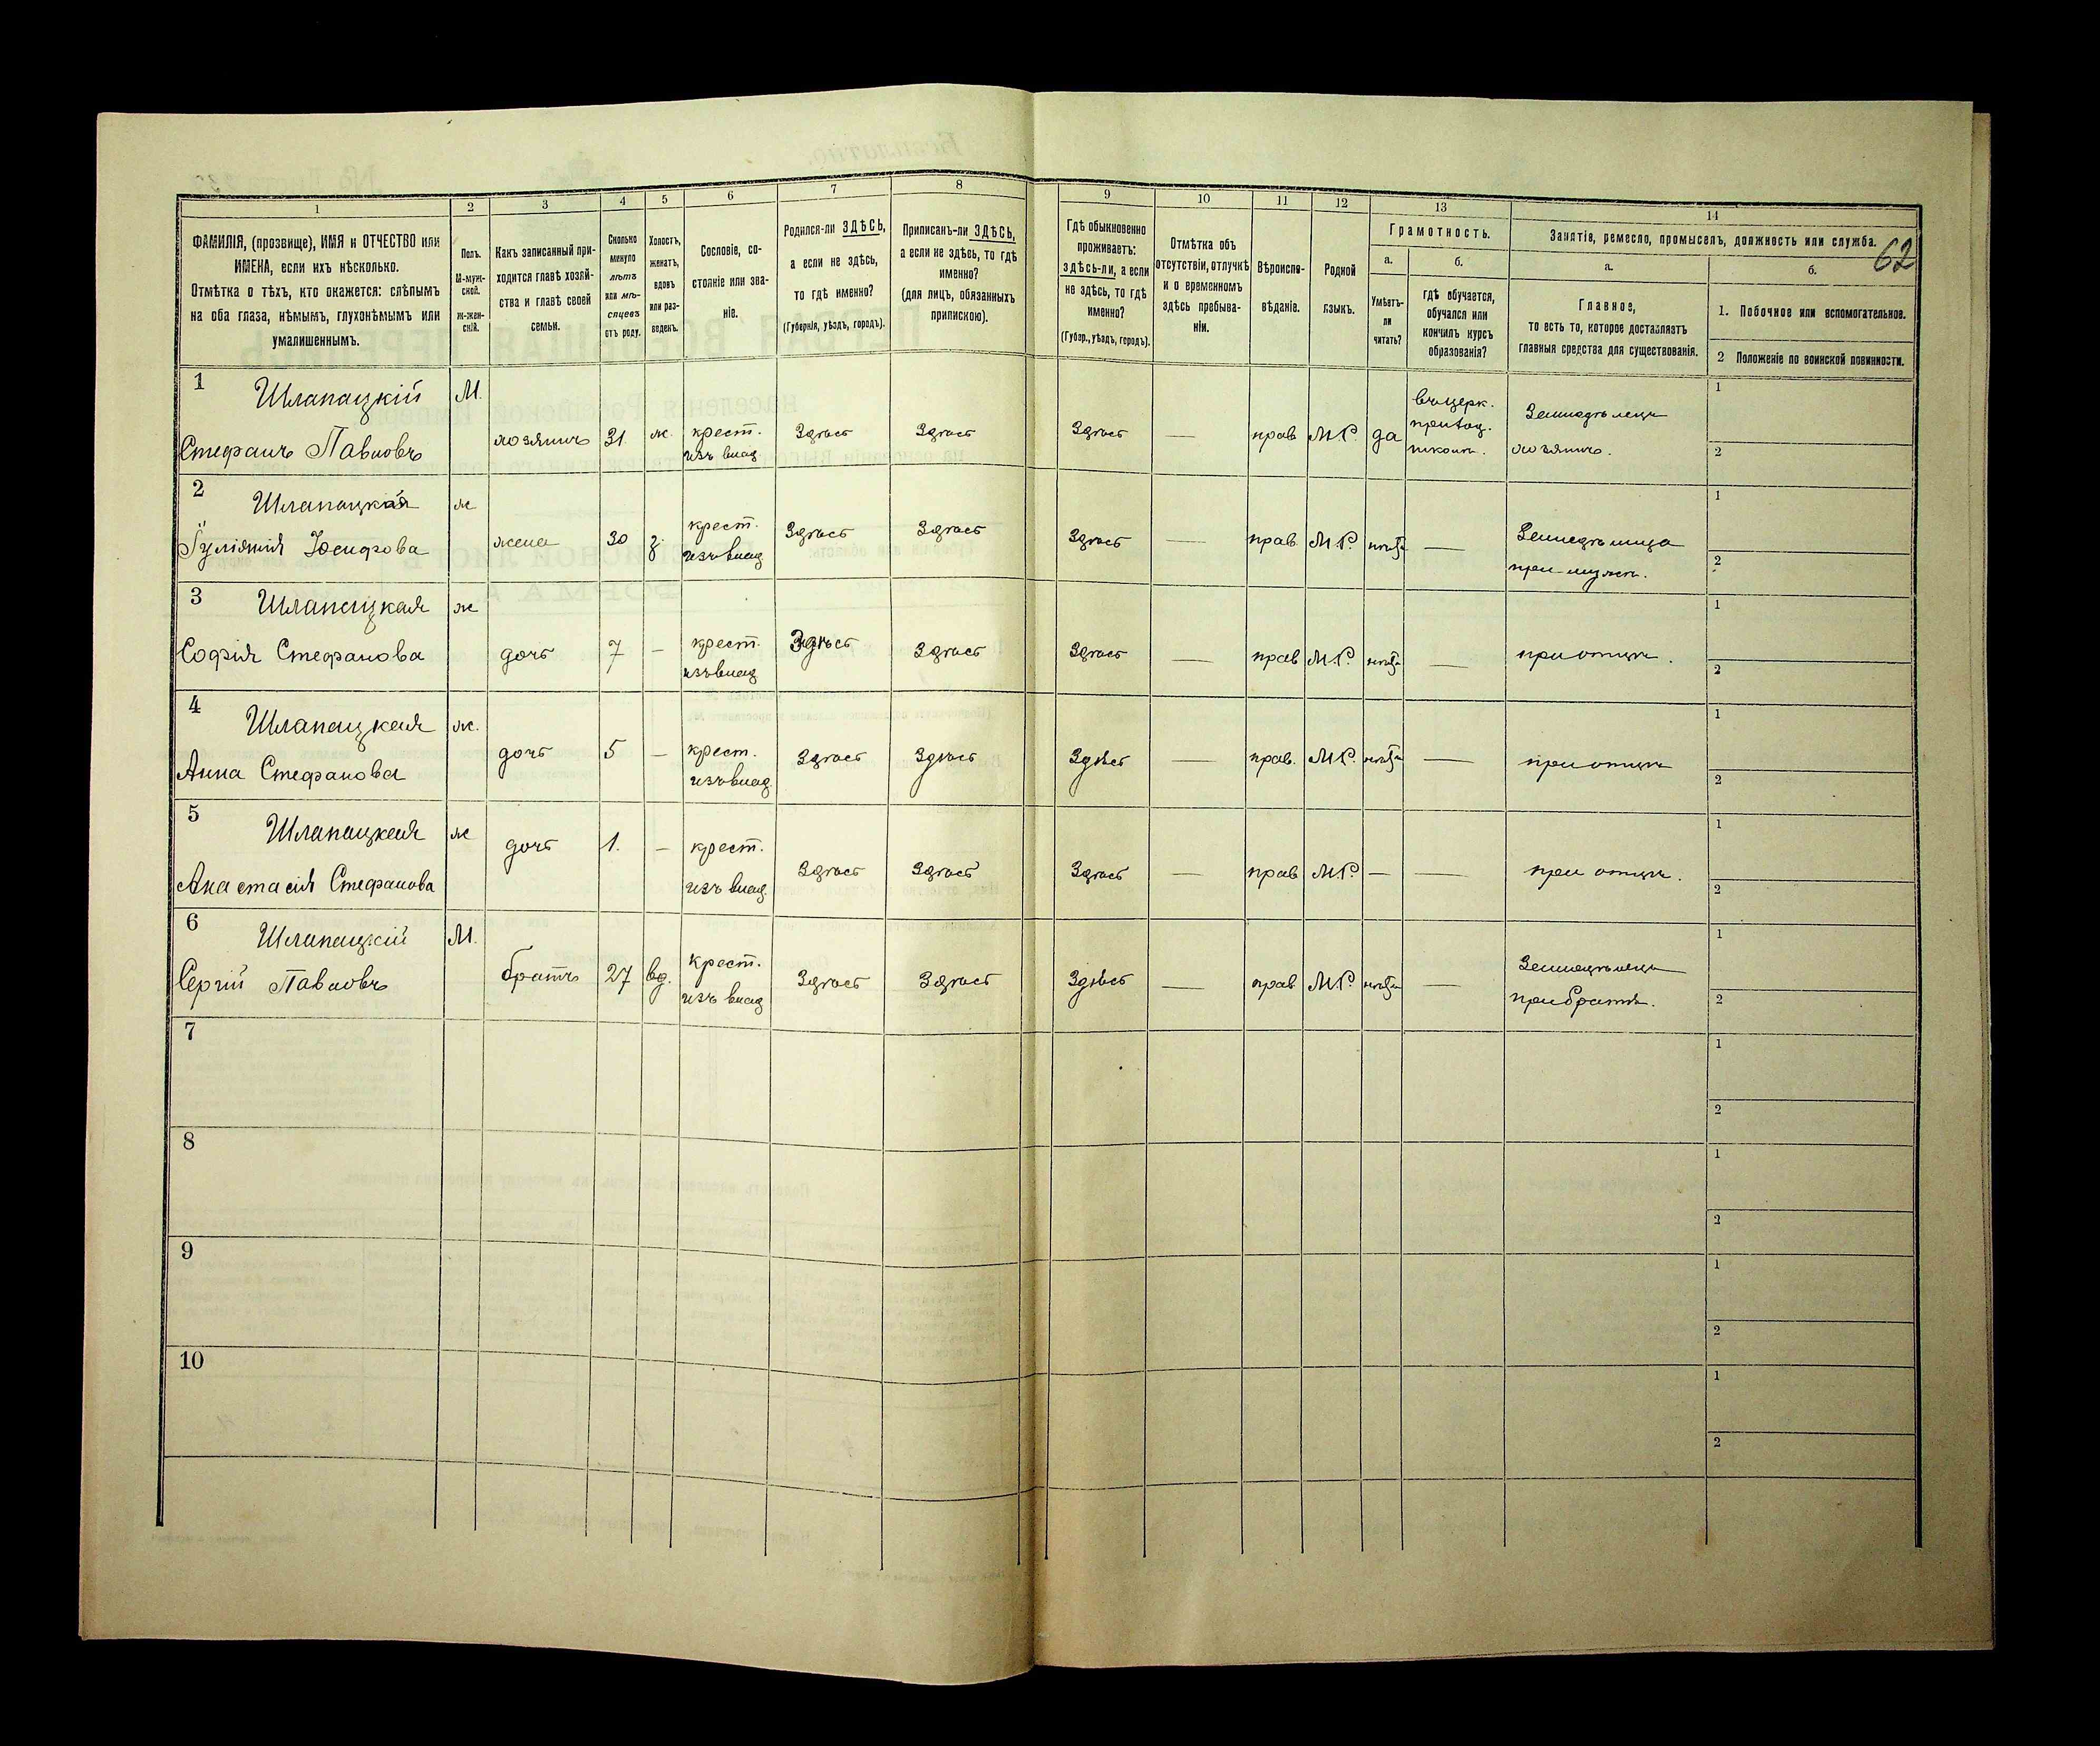 62
1 2 3 4 5 6 7 8 9 10 11 12 13 14
ФАМИЛІЯ, (прозвище), ИМЯ и ОТЧЕСТВО или
ИМЕНА, если ихъ нѣсколько.
Отмѣтка о тѣхъ, кто окажется: слѣпымъ
на оба глаза, нѣмымъ, глухонѣмымъ или
умалишеннымъ.
Полъ.
М-муж-
ской.
ж-жен-
скій.
Какъ записанный при-
ходится главѣ хозяй-
ства и главѣ своей
семьи.
Сколько
минуло
лѣтъ
или мѣ-
сяцевъ
отъ роду.
Холостъ,
женатъ,
вдовъ
или раз-
веденъ.
Сословіе, со-
стояніе или зва-
ніе.
Родился-ли ЗДѢСЬ,
а если не здѣсь,
то гдѣ именно?
(Губернія, уѣздъ, городъ).
Приписанъ-ли ЗДѢСЬ,
а если не здѣсь, то гдѣ
именно?
(для лицъ, обязанныхъ
припискою).
Гдѣ обыкновенно
проживаетъ:
здѣсь-ли, а если
не здѣсь, то гдѣ
именно?
(Губер., уѣздъ, городъ).
Отмѣтка объ
отсутствіи, отлучкѣ
и о временномъ
здѣсь пребыва-
ніи.
Вѣроиспо-
вѣданіе.
Родной
языкъ.
Грамотность.
а.
Умѣетъ-
ли
читать?
б.
гдѣ обучается,
обучался или
кончилъ курсъ
образованія?
Занятіе, ремесло, промыселъ, должность или служба.
а.
Главное,
то есть то, которое доставляетъ
главныя средства для существованія.
б.
1. Побочное или вспомогательное.
2 Положеніе по воинской повинности.
1 Шлапацкій М.
Стефанъ Павловъ хозяинъ 31 ж. крест. изъ влад. Здѣсь Здѣсь Здѣсь — прав М.Р. да
въ церк.
приход.
школѣ.
Земледѣлецъ
хозяинъ.
1
2
2 Шлапацкая ж
Іуліянія Іосифова жена 30 з. крест. изъ влад Здѣсь Здѣсь Здѣсь — прав. М.Р. нѣтъ —
Земледѣлица
при мужѣ.
1
2
3 Шлапацкая ж
Софія Стефанова дочь 7 — крест. изъ влад Здѣсь Здѣсь Здѣсь — прав М.Р. нѣтъ — при отцѣ.
1
2
4 Шлапацкая ж.
Анна Стефанова дочь 5 — крест. изъ влад. Здѣсь Здѣсь Здѣсь — прав. М.Р. нѣтъ — при отцѣ
1
2
5 Шлапацкая ж
Анастасія Стефанова дочь 1. — крест. изъ влад. Здѣсь Здѣсь Здѣсь — прав М.Р. — — при отцѣ.
1
2
6 Шлапацкій М.
Сергій Павловъ братъ 27 вд. крест. изъ влад Здѣсь Здѣсь Здѣсь — прав М.Р. нѣтъ —
Земледѣлецъ
при братѣ.
1
2
7
1
2
8
1
2
9
1
2
10
1
2